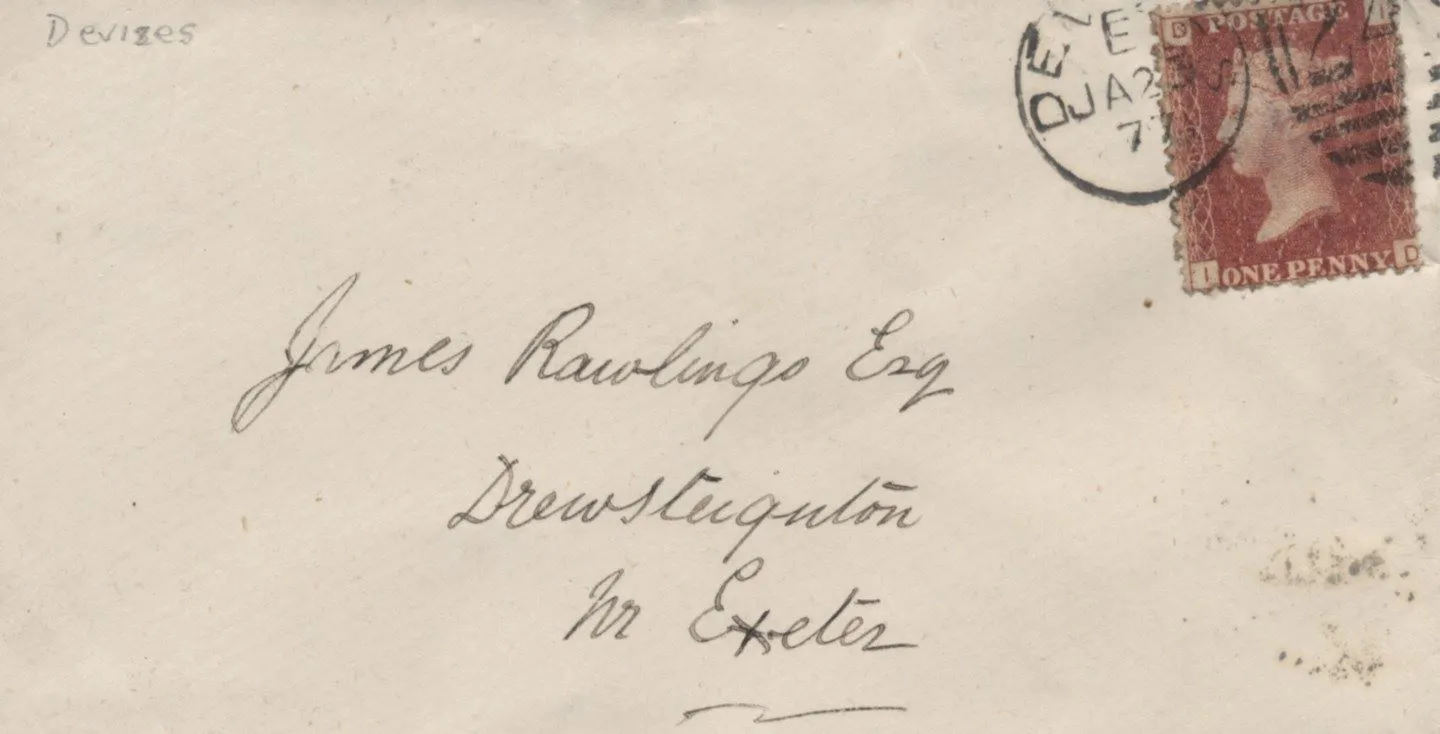 Devizes
DEV
E
JA23
77
S
D POSTAGE I
I ONE PENNY D
James Rawlings Esq
Drewsteignton
Nr Exeter